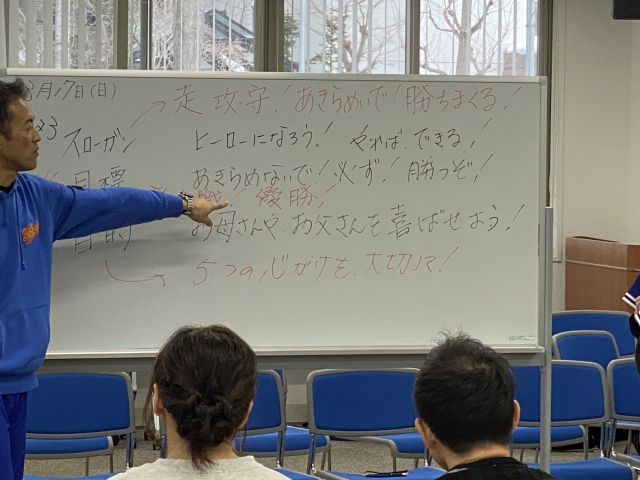 3月17日(日)
走、攻、守!あきらめいで!勝ちまくる!
スローガン ヒーローになろう! やれば、できる!
目標 あきらめないで!必ず!勝つぞ!
優勝!
目的 お母さんや、お父さんを喜ばせよう!
5つの心がけを、大切に!